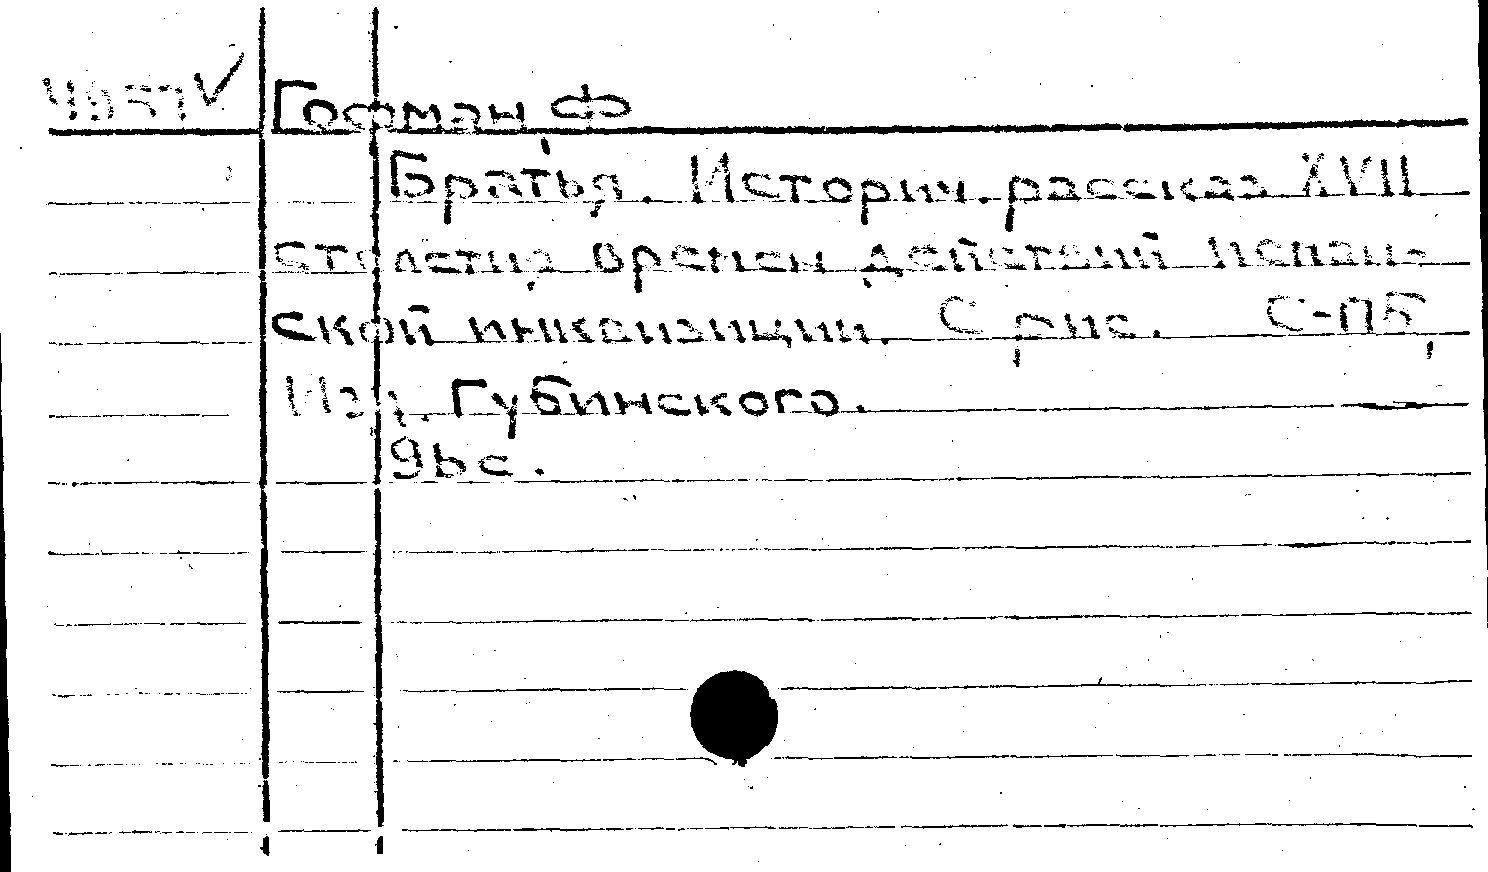 Гофман, Ф
Братья. Историч. рассказ XVII
столетия, времен действий испан-
ской инквизиции. С рис. С-Пб,
Изд. Губинского.
96 с.